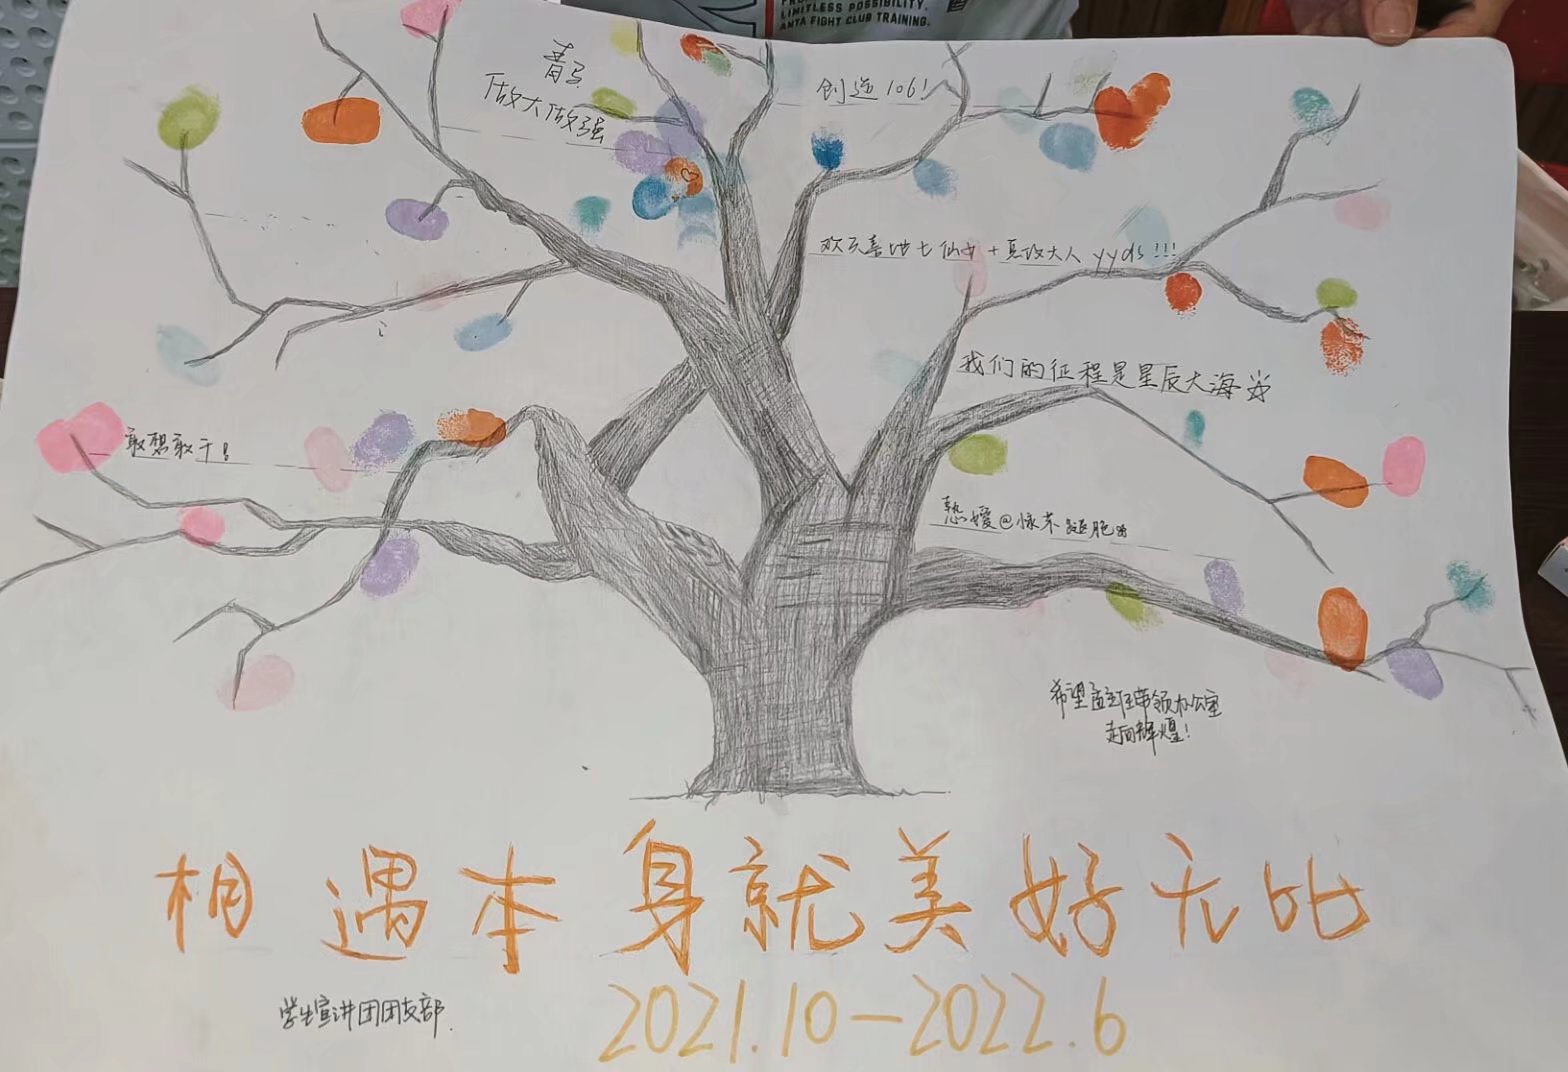 LIMITLESS POSSIBILITY.
ANTA FIGHT CLUB TRAINING.
青马
做大做强
创造106!
欢天喜地七仙女+夏政大人 yyds!!!
我们的征程是星辰大海
敢想敢干!
热爱@
希望孟班带领办公室
走向辉煌!
相遇本身就美好无比
2021.10—2022.6
学生宣讲团团支部.